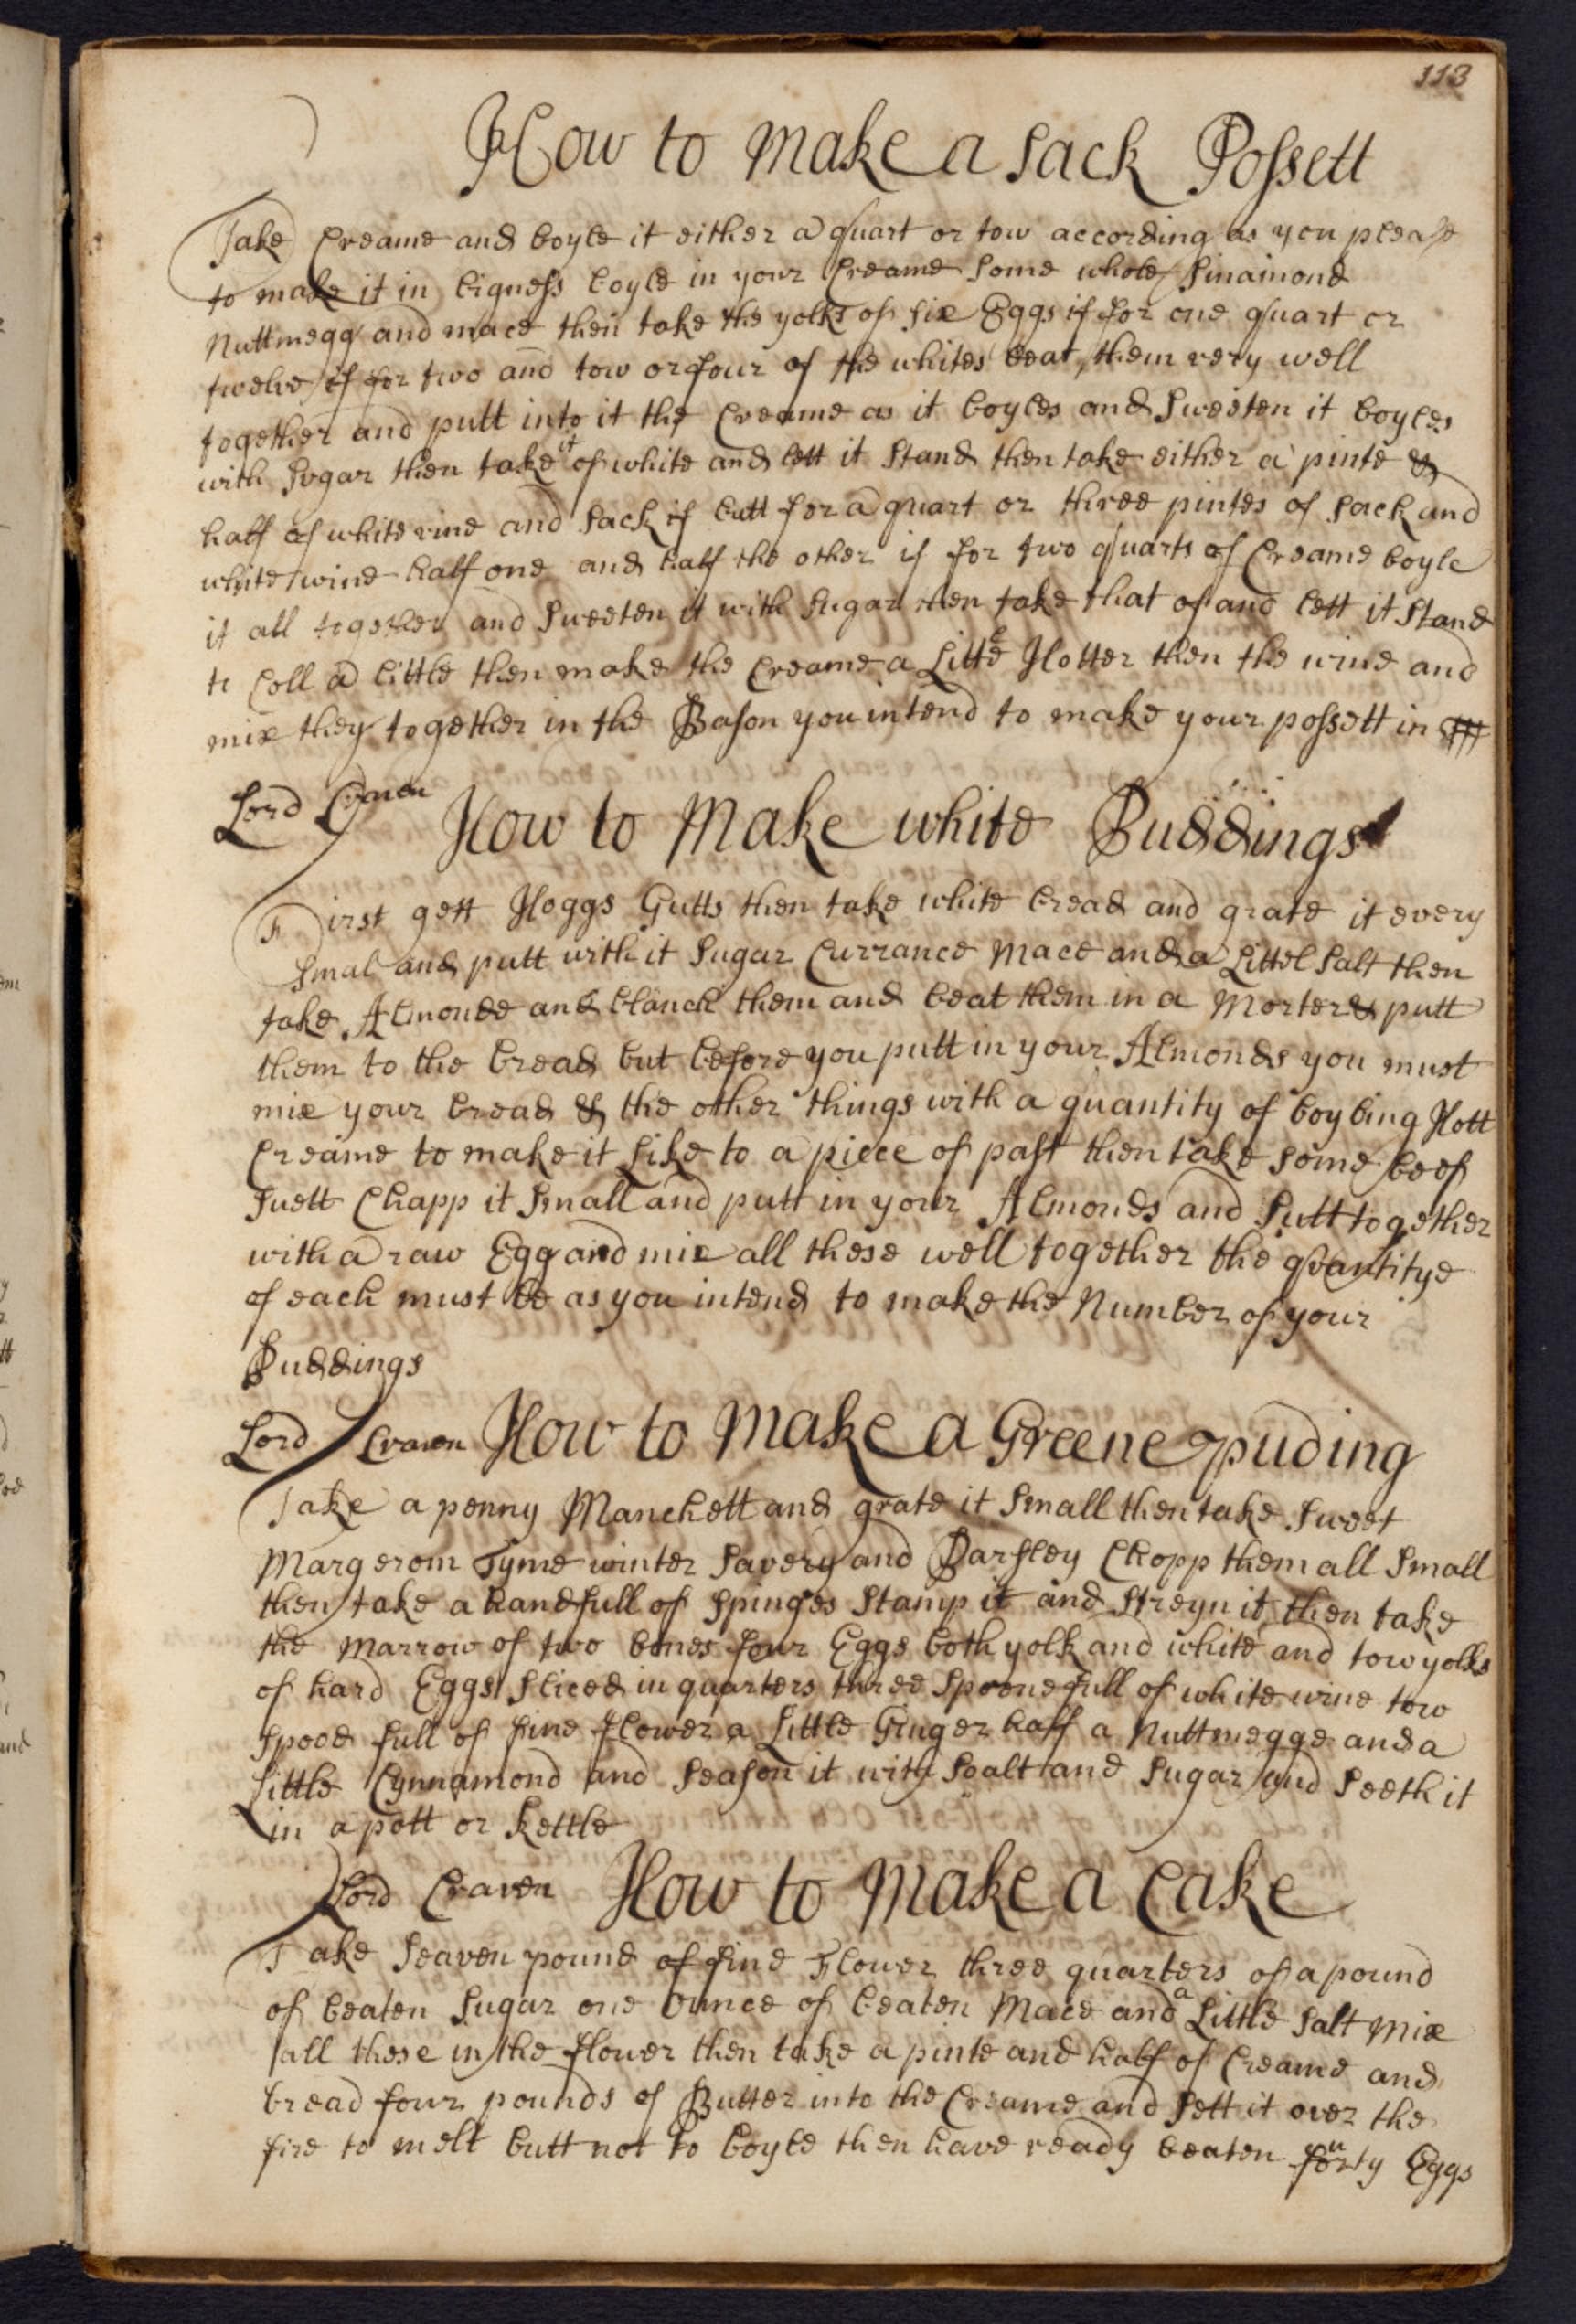 113
How to make a sack Possett
Take Creame and boyle it either a quart or tow according as you please
to make it in bigness boyle in your Creame some whole Sinamond
Nuttmegg and mace then take the yolks of six Eggs if for one quart or
twelve if for two and tow or four of the whites beat them very well
together and putt into it the Creame as it boyles and Sweeten it boyles
with Sugar then take it of white and lett it Stand then take either a pinte &
half of white wine and Sack if butt for a quart or three pintes of Sack and
white wine half one and half the other if for two quarts of Creame boyle
it all together and Sweeten it with Sugar then take that of and lett it Stand
to Coll a little then make the Creame a Little Hotter then the wine and
mix they together in the Bason you intend to make your possett in
Lord Craven How to Make white Puddings
First gett Hoggs Gutts then take white bread and grate it every
Smal and putt with it Sugar Currance Mace and a Littel Salt then
take Almonde and blanch them and beat them in a Morter & putt
them to the bread but before you putt in your Almonds you must
mix your bread & the other things with a quantity of boyling Hott
Creame to make it Like to a piece of past then take some beef
Suett Chapp it Small and putt in your Almonds and Putt together
with a raw Egg and mix all these well together the quantitye
of each must be as you intend to make the Number of your
Puddings
Lord Craven How to Make a Greene puding
Take a penny Manchett and grate it Small then take Sweet
Margerom Tyme winter Savery and Parsley Chopp them all Small
then take a handfull of Spinges Stamp it and Streyn it then take
the Marrow of two bones four Eggs both yolk and white and tow yolks
of hard Eggs Sliced in quarters three Spoonefull of white wine tow
Spooe full of fine flower a Little Ginger half a Nuttmegge and a
Little Cynnamond and Season it with Soalt and Sugar and Seeth it
in a pott or Kettle
Lord Craven How to Make a Cake
Take Seaven pound of fine Flower three quarters of a pound
of beaten Sugar one Ounce of beaten Mace and a Little Salt Mix
all these in the flower then take a pinte and half of Creame and
bread four pounds of Butter into the Creame and Sett it over the
fire to melt butt not to boyle then have ready beaten fourty Eggs